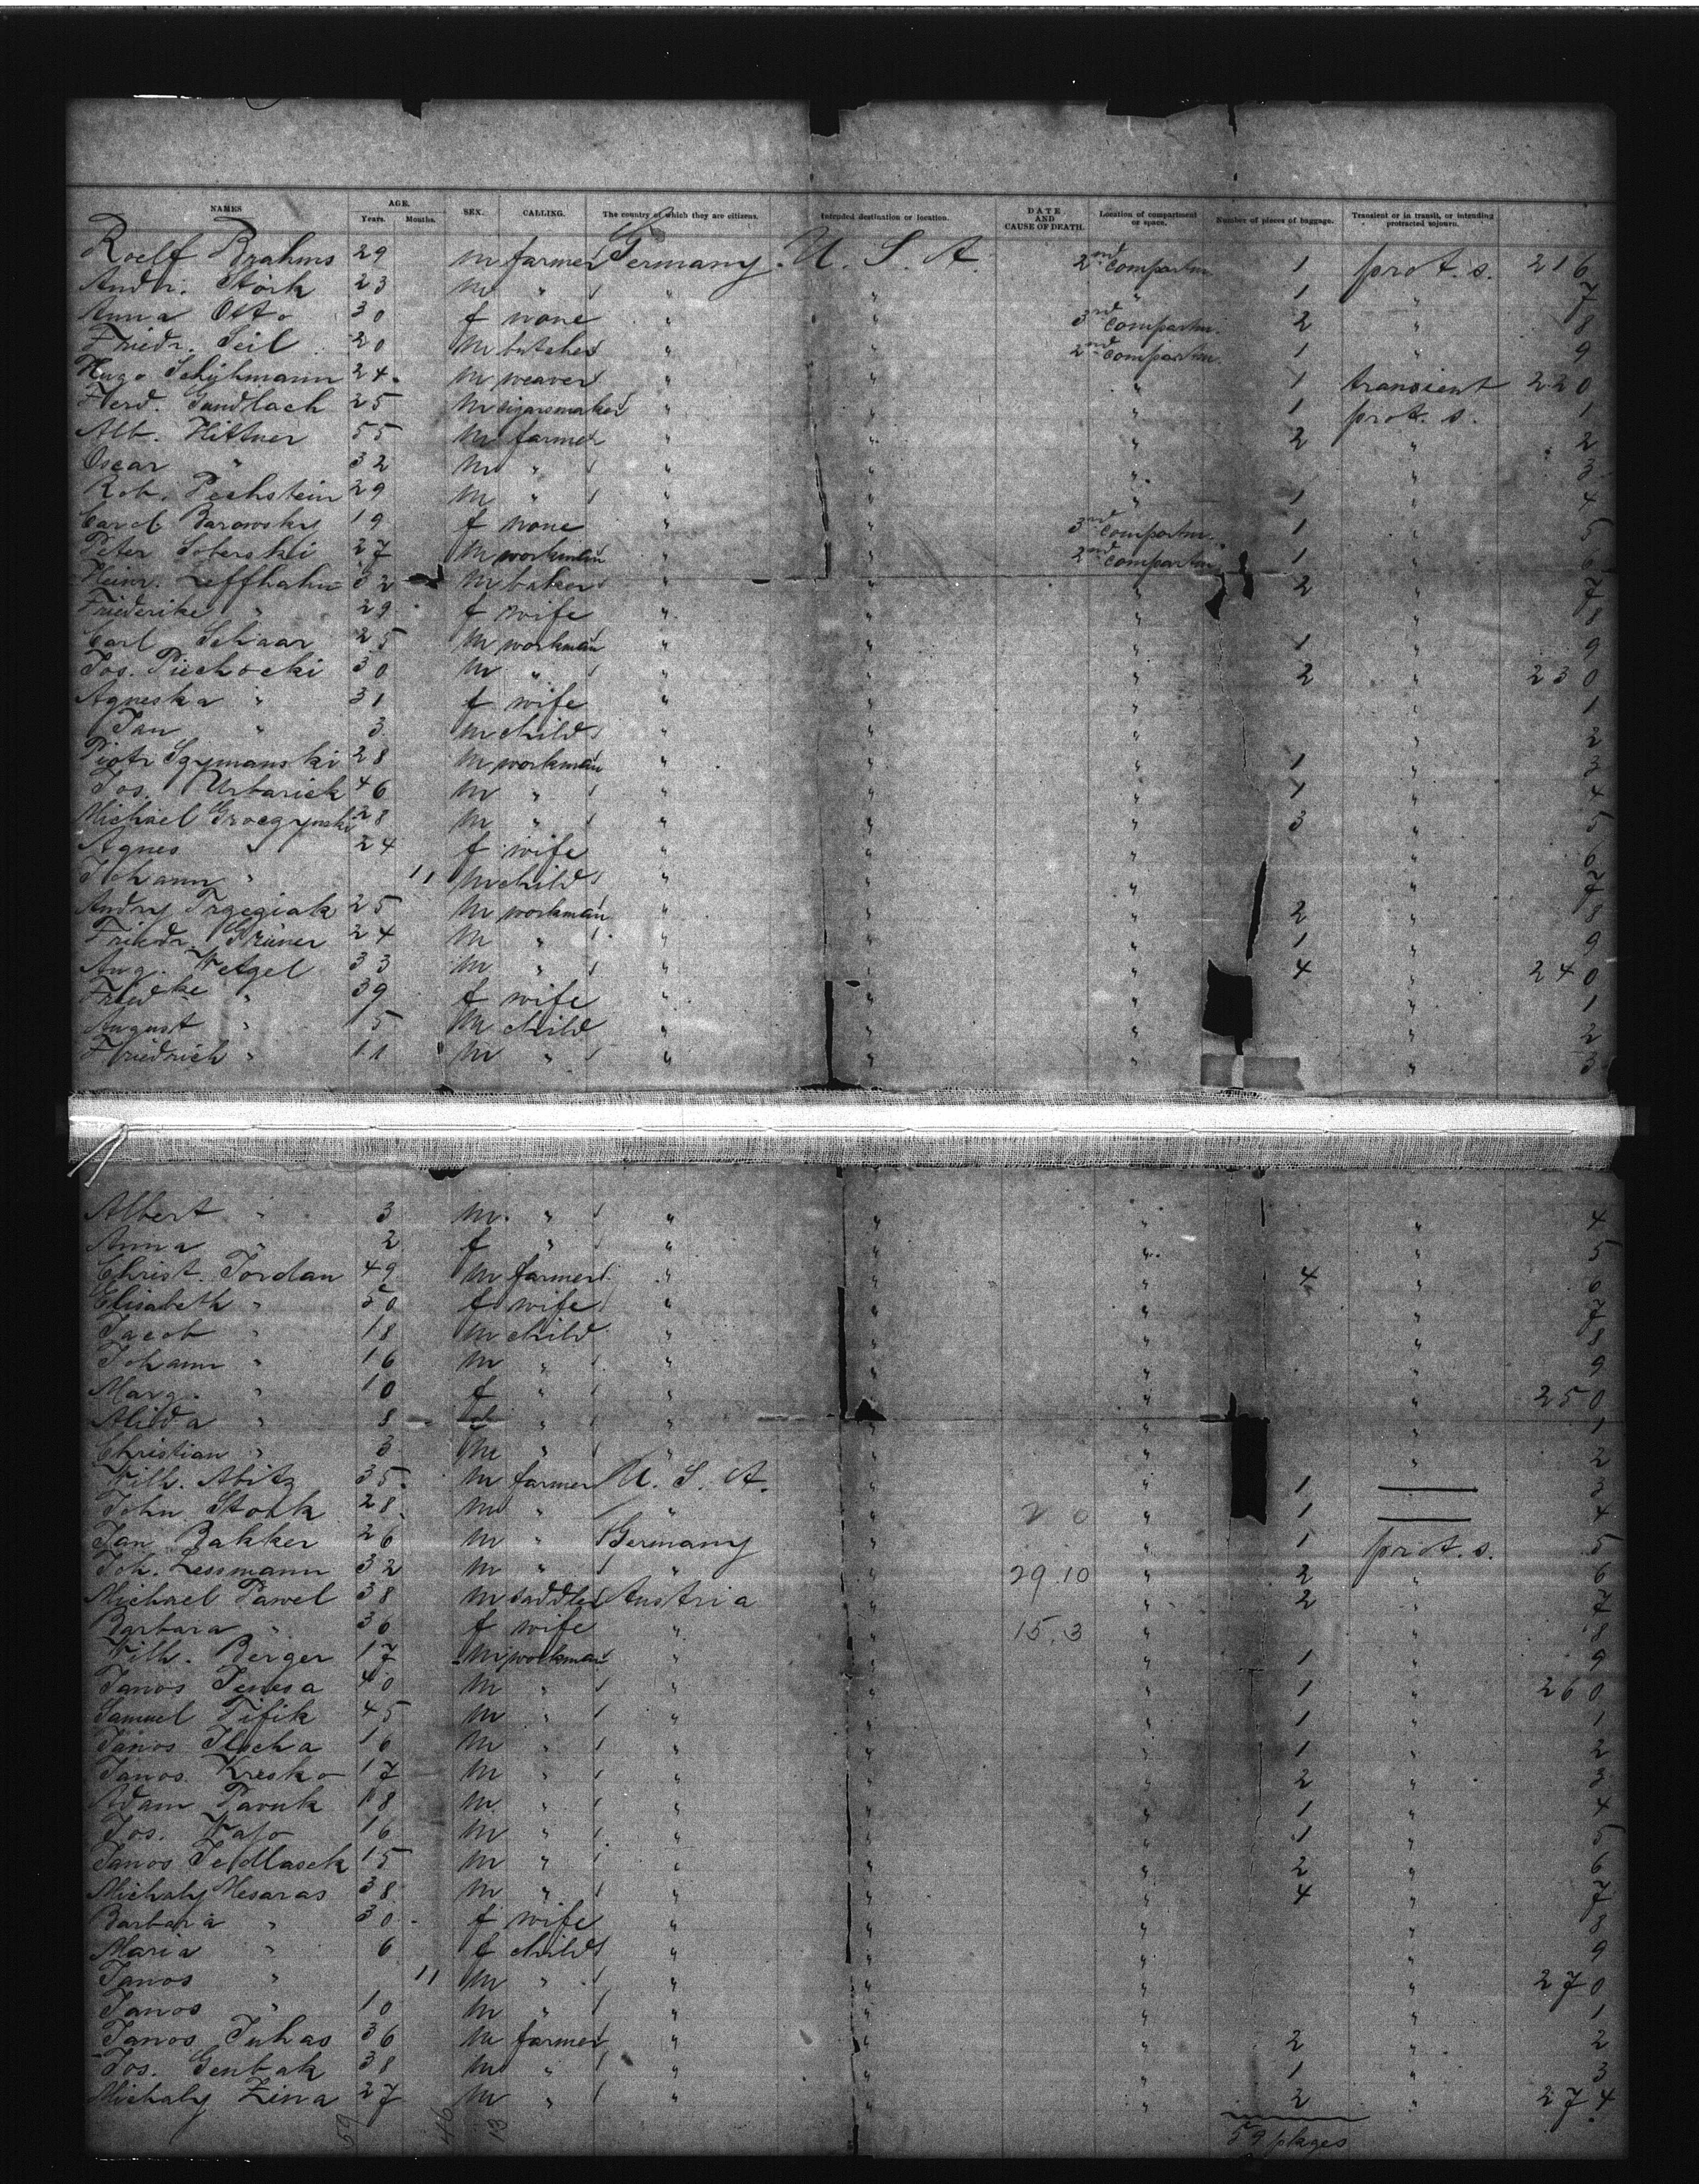 NAMES AGE. SEX. CALLING. The country of which they are citizens. Intended destination or location. DATE AND CAUSE OF DEATH. Location of compartment or space. Number of pieces of baggage. Transient or in transit, or intending protracted sojourn.
Years. Months.
Roelf Brahms 29 m farmer Germany. U. S. A. 2nd compartm. 1 prot. s. 216
Andr. Stork 23 m " " " " 1 " 7
Anna Otto 30 f none " " 3rd compartm. 2 " 8
Friedr. Seil 20 m butcher " " 2nd compartm. 1 " 9
Hugo 24 m weaver " " " 1 transient 220
Ferd. Gundlach 25 m sigarsmaker " " " 1 prot. s. 1
Alb. Hittner 55 m farmer " " " 2 " 2
Oscar " 32 m " " " " " 3
Rob. Pechstein 29 m " " " " 1 " 4
Carol. Barowsky 19 f none " " 3rd compartm. 1 " 5
Peter Soberski 27 m workman " " 2nd compartm. 1 " 6
Heinr. Leffhahn 32 m baker " " " 2 " 7
Friederike " 29 f wife " " " " 8
Carl Schaar 25 m workman " " " 1 " 9
Jos. Piechocki 30 m " " " " 2 " 230
Agneska " 31 f wife " " " " 1
Jan " 3 m child " " " " 2
Piotr Szymanski 28 m workman " " " 1 " 3
Jos. Urbarick 46 m " " " " 1 " 4
Michael 28 m " " " " 3 " 5
Agnes " 24 f wife " " " " 6
Johann " 11 m child " " " " 7
Andry Trzeziak 25 m workman " " " 2 " 8
Friedr. Grüner 24 m " " " " 1 " 9
Aug. Wetzel 33 m " " " " 4 " 240
Friedke " 39 f wife " " " " 1
August " 15 m child " " " " 2
Friedrich " 11 m " " " " " 3
Albert " 3 m. " " " " " 4
Anna " 2 f " " " " " 5
Christ. Jordan 49 m farmer " " " 4 " 6
Elisabeth " 50 f wife " " " " 7
Jacob " 18 m child " " " " 8
Johann " 16 m " " " " " 9
Marg. " 10 f " " " " " 250
Alidda " 8 f " " " " " 1
Christian " 3 m " " " " " 2
Wilh. Abitz 35 m farmer U. S. A. " " 1 — 3
John Stork 28 m " " " " 1 — 4
Jan Bakker 26 m " Germany " " 1 prot. s. 5
Joh. Lessmann 32 m " " " 29.10 " 2 " 6
Michael Pawel 38 m saddler Austria " " 2 " 7
Barbara " 36 f wife " " 15.3 " " 8
Wilh. Berger 17 m workman " " " 1 " 9
Janos 40 m " " " " 1 " 260
Samuel Fifik 45 m " " " " 1 " 1
Janos 16 m " " " " 1 " 2
Janos Kresko 17 m " " " " 2 " 3
Adam Pavuk 18 m " " " " 1 " 4
Jos. 16 m " " " " 1 " 5
Janos Sedlasek 15 m " " " " 2 " 6
Michaly Mesaras 38 m " " " " 4 " 7
Barbara " 30 f wife " " " " 8
Maria " 6 f child " " " " 9
Janos " 11 m " " " " " 270
Janos " 10 m " " " " " 1
Janos Juhas 36 m farmer " " " 2 " 2
Jos. Genbak 38 m " " " " 1 " 3
Michaly Zina 27 m " " " " 2 " 274
59 46 13 59 pkages